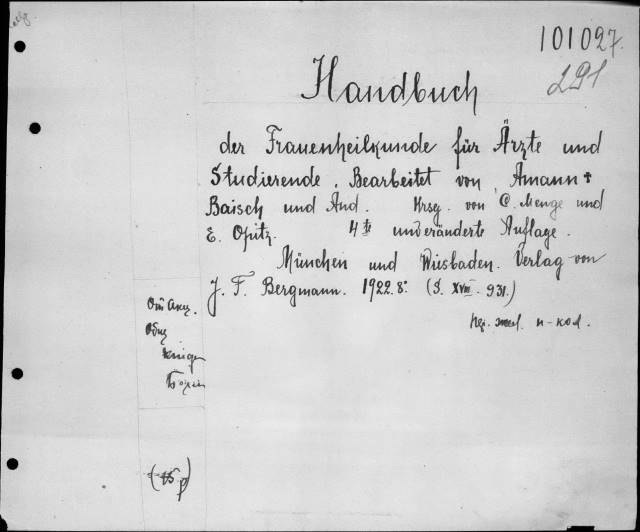 101027.
291
Handbuch
der Frauenheilkunde für Ärzte und
Studierende. Bearbeitet von, Amann †
Baisch und And. Hrsg. von C. Menge und
E. Opitz. 4te unveränderte Auflage.
München und Wiesbaden. Verlag von
J. F. Bergmann. 1922. 8º. (S. XVIII. 931.)
и-кол.
От Акц.
Общ.
Книга